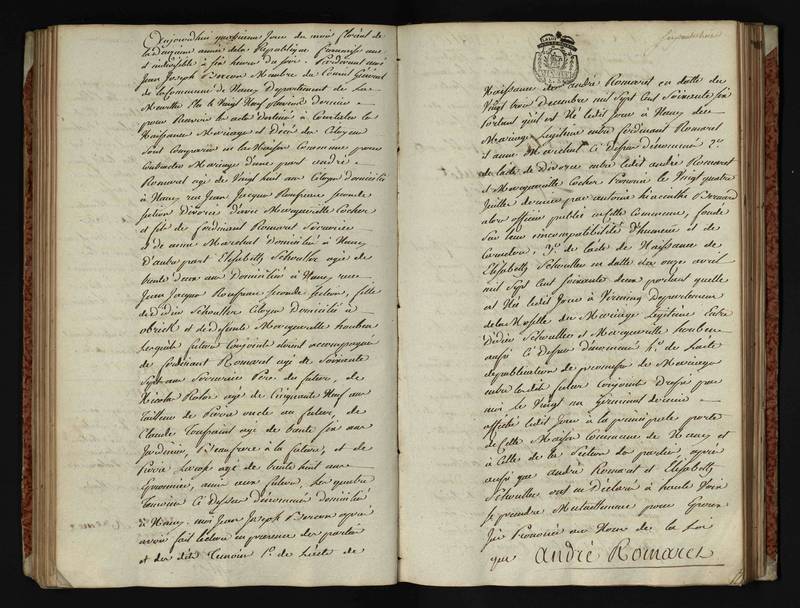 Aujourdhui quatrieme Jour du mois floréal de
la deuxieme année de la Republique française une
et indivisible à six heures du soir. Pardevant moi
Jean Joseph Membre du Conseil Général
de la Commune de Nancy Departement de la
Meurthe Elu le Vingt Neuf dernier
pour Recevoir les actes destinés à Constater les
Naissance Mariage et Décès des Citoyens
sont comparus en la Maison Commune pour
Contracter Mariage d'une part andré
Romaret agé de Vingt huit ans Citoyen domicilié
à Nancy rue Jean Jacques Rousseau seconde
section divorcé d'avec Marguerite Cocher
et fils de ferdinant Romaret Serrurier
et de anne Marchal domiciliés à Nancy
D'autre part Elisabeth Schouller agée de
trente deux ans Domiciliée à Nancy rue
Jean Jacques Rousseau seconde section, fille
de didier Schouller Citoyen Domicilié à
obrick et de defunte Marguerite houben
Lesquels futurs Conjoints étoient accompagnés
de ferdinant Romaret agé de Soixante
Sept ans Serrurier Pere du futur, de
Nicolas agé de Cinquante Neuf ans
tailleur de Pierre oncle au futur, de
Claude Toussaint agé de trente six ans
Jardinier, Beaufrere à la future, et de
Pierre agé de trente huit ans
ami aux futurs. Les quatre
temoins Ci dessus dénommés domiciliés
à Nancy. moi Jean Joseph après
avoir fait lecture en presence des parties
et des dits temoins 1°. de l'acte de
Naissance de andré Romaret en datte du
Vingt trois Decembre mil Sept Cent Soixante six
Portant qu'il est Né Ledit Jour à Nancy du
Mariage Legitime entre ferdinant Romaret
et anne Marchal Ci dessus dénommés 2°.
de l'acte de Divorce entre ledit andré Romaret
et Marguerite Cocher Prononcé le Vingt quatre
Juillet dernier par antoine hiacinthe
alors officier public en cette Commune, fondé
sur leur incompatibilité d'humeur et de
Caractere, 3°. de l'acte de Naissance de
Elisabeth Schouller en datte du onze avril
mil Sept Cent Soixante deux portant quelle
est Née ledit Jour à Departement
de la Moselle du Mariage Legitime Entre
Didier Schouller et Marguerite houben
aussi Ci dessus dénommés 4°. de l'acte
de publication de promesse de Mariage
entre lesdits futurs conjoints Dressé par
moi le Vingt un Germinal dernier
affiché ledit Jour à la principale porte
de Cette Maison Commune de Nancy et
à Celle de la Section des parties, après
aussi que andré Romaret et Elisabeth
Schouller ont eu Déclaré à haute Voix
se prendre Mutuellement pour Epoux
J'ai Prononcé au Nom de la Loi
que andré Romaret